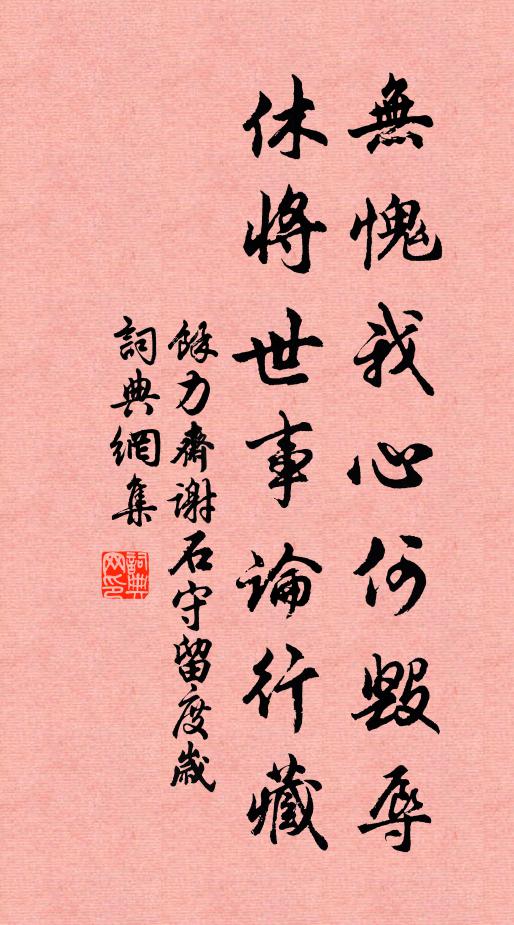 無愧我心何毀辱
休將世事論行藏
餘力齋謝石守留度歲
詞典網集
詞典網印